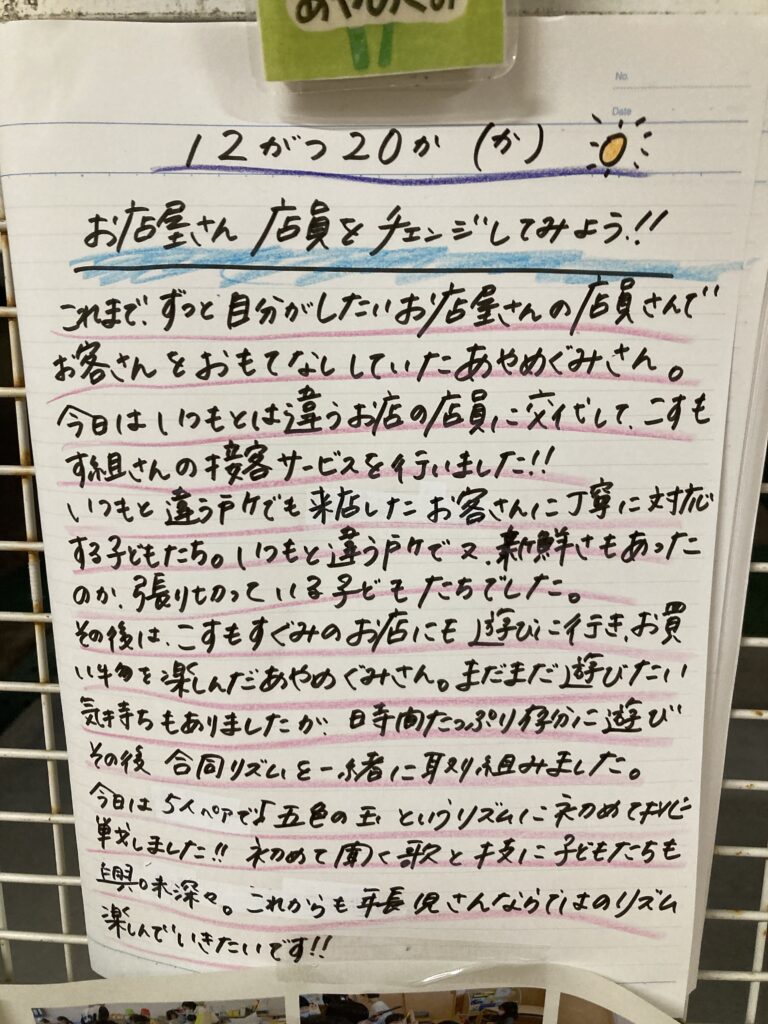 あやめぐみ
No.
Date
12がつ20か(か)
お店屋さん 店員をチェンジしてみよう!!
これまで、ずっと自分がしたいお店屋さんの店員さんで
お客さんをおもてなししていたあやめぐみさん。
今日はいつもとは違うお店の店員に交代して、こすも
す組さんの接客サービスを行いました!!
いつもと違う戸ケでも来店したお客さんに丁寧に対応
する子どもたち。いつもと違う戸ケで又、新鮮さもあった
のか、張り切っている子どもたちでした。
その後は、こすもすぐみのお店にも遊びに行き、お買
い物を楽しんだあやめぐみさん。まだまだ遊びたい
気持ちもありましたが、時間たっぷり存分に遊び
その後 合同リズムを一緒に取り組みました。
今日は5人ペアで♪五色の玉というリズムに初めて挑
戦しました!! 初めて聞く歌と技に子どもたちも
興味深々。これからも年長児さんならではのリズム
楽しんでいきたいです!!